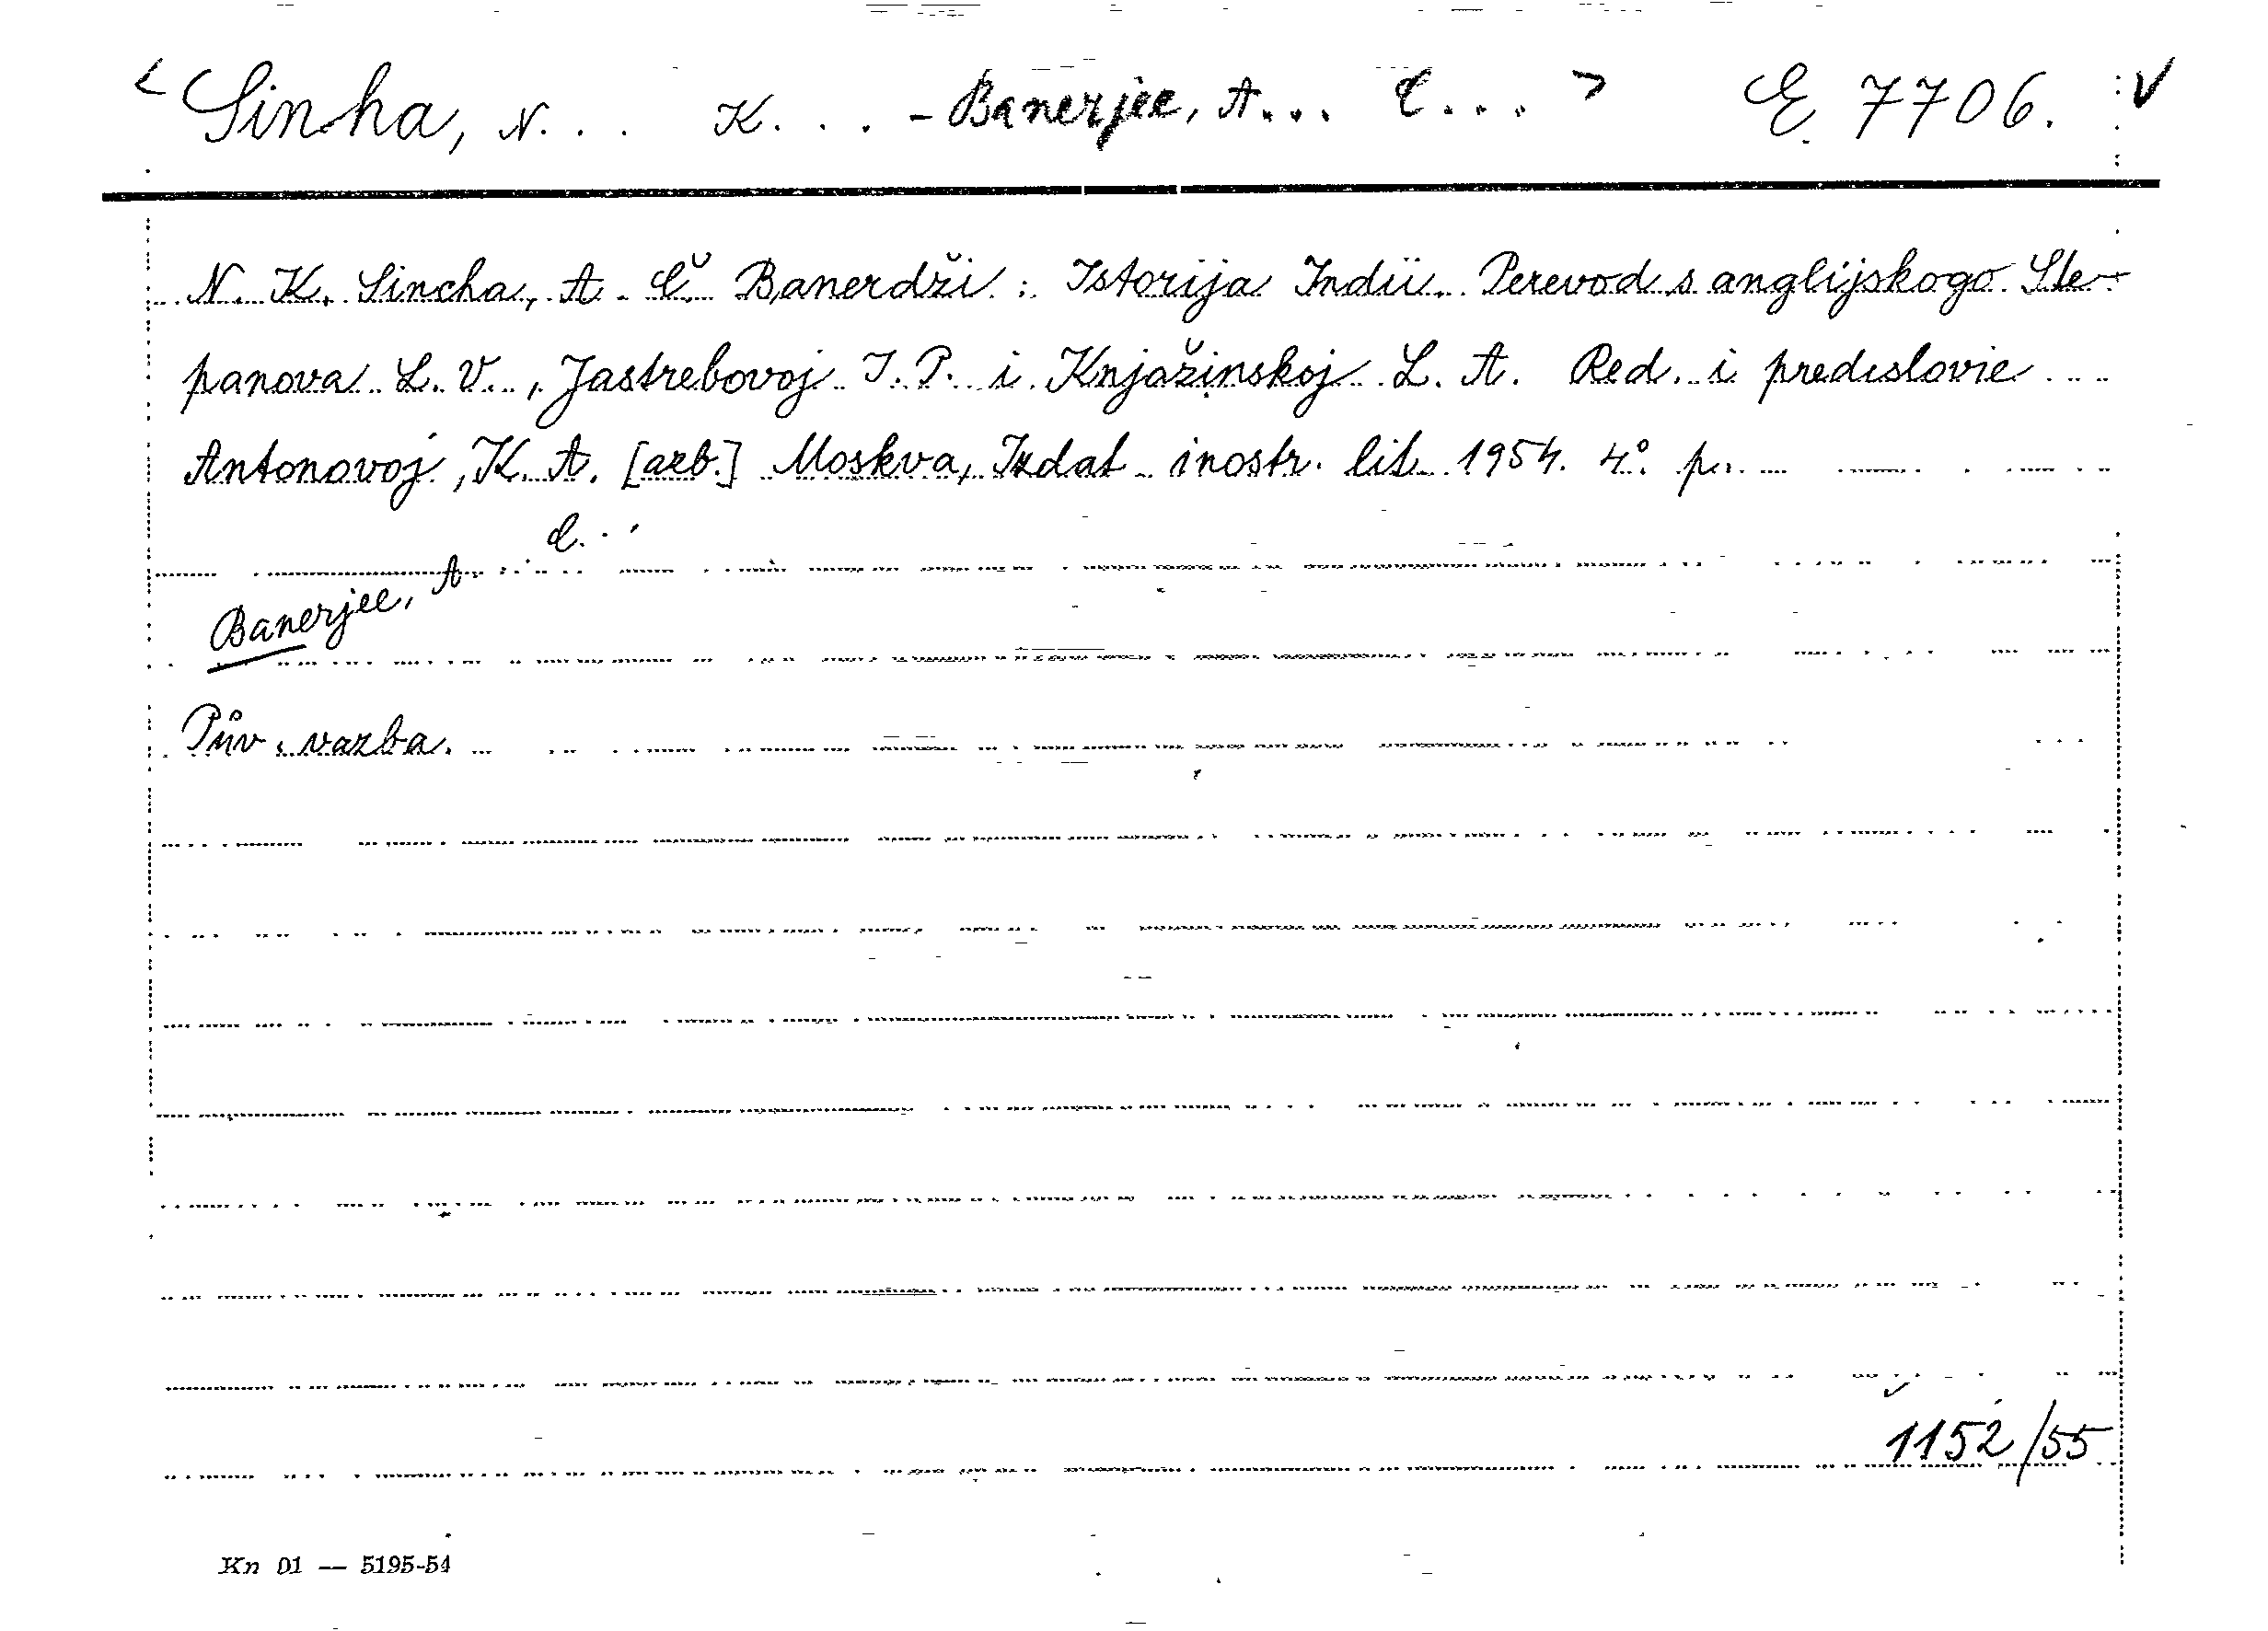 < Sinha, N... K... - Banerjee, A... C... > E 7706. V
N. K. Sincha, A. Č. Banerdži: Istorija Indii. Perevod s anglijskogo Ste-
panova L. V., Jastrebovoj I. P. i Knjažinskoj L. A. Red. i predislovie
Antonovoj, K. A. [azb.] Moskva, Izdat. inostr. lit. 1954. 4° p.
Banerjee, A... C...
Pův. vazba.
1152/55
Kn 01 — 5195-54